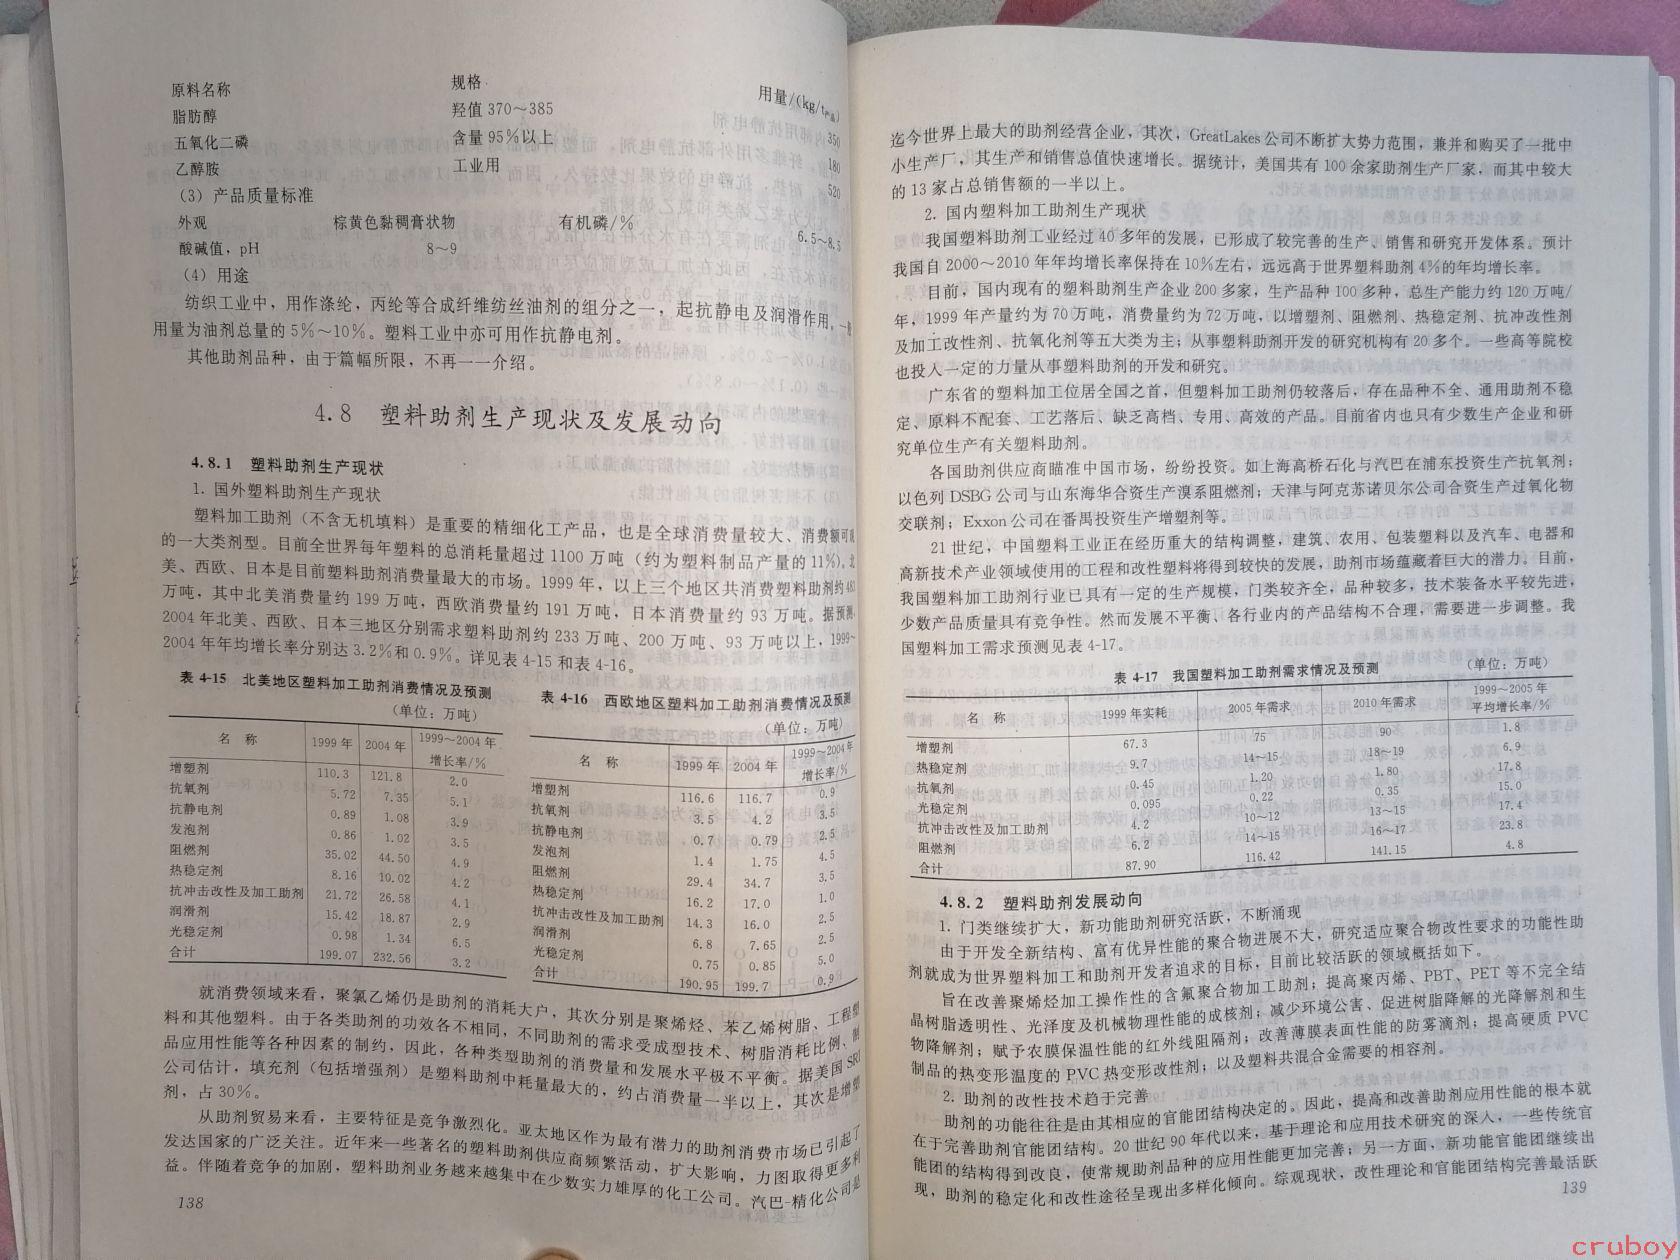 原料名称 规格 用量/(kg/t产品)
脂肪醇 羟值 370～385 350
五氧化二磷 含量 95%以上 180
乙醇胺 工业用 520
（3）产品质量标准
外观 棕黄色黏稠膏状物 有机磷/% 6.5～8.5
酸碱值，pH 8～9
（4）用途
纺织工业中，用作涤纶，丙纶等合成纤维纺丝油剂的组分之一，起抗静电及润滑作用，一般
用量为油剂总量的 5%～10%。塑料工业中亦可用作抗静电剂。
其他助剂品种，由于篇幅所限，不再一一介绍。
4.8 塑料助剂生产现状及发展动向
4.8.1 塑料助剂生产现状
1. 国外塑料助剂生产现状
塑料加工助剂（不含无机填料）是重要的精细化工产品，也是全球消费量较大、消费额可观
的一大类剂型。目前全世界每年塑料的总消耗量超过 1100 万吨（约为塑料制品产量的 11%）。北
美、西欧、日本是目前塑料助剂消费量最大的市场。1999 年，以上三个地区共消费塑料助剂约 483
万吨，其中北美消费量约 199 万吨，西欧消费量约 191 万吨，日本消费量约 93 万吨。据预测，
2004 年北美、西欧、日本三地区分别需求塑料助剂约 233 万吨、200 万吨、93 万吨以上，1999～
2004 年年均增长率分别达 3.2%和 0.9%。详见表 4-15 和表 4-16。
表 4-15 北美地区塑料加工助剂消费情况及预测
（单位：万吨）
名 称 1999 年 2004 年 1999～2004 年增长率/%
增塑剂 110.3 121.8 2.0
抗氧剂 5.72 7.35 5.1
抗静电剂 0.89 1.08 3.9
发泡剂 0.86 1.02 3.5
阻燃剂 35.02 44.50 4.9
热稳定剂 8.16 10.02 4.2
抗冲击改性及加工助剂 21.72 26.58 4.1
润滑剂 15.42 18.87 2.9
光稳定剂 0.98 1.34 6.5
合计 199.07 232.56 3.2
表 4-16 西欧地区塑料加工助剂消费情况及预测
（单位：万吨）
名 称 1999 年 2004 年 1999～2004 年增长率/%
增塑剂 116.6 116.7 0.9
抗氧剂 3.5 4.2 3.5
抗静电剂 0.7 0.79 2.5
发泡剂 1.4 1.75 4.5
阻燃剂 29.4 34.7 3.5
热稳定剂 16.2 17.0 1.0
抗冲击改性及加工助剂 14.3 16.0 2.5
润滑剂 6.8 7.65 2.5
光稳定剂 0.75 0.85 5.0
合计 190.95 199.7 0.9
就消费领域来看，聚氯乙烯仍是助剂的消耗大户，其次分别是聚烯烃、苯乙烯树脂、工程塑
料和其他塑料。由于各类助剂的功效各不相同，不同助剂的需求受成型技术、树脂消耗比例、制
品应用性能等各种因素的制约，因此，各种类型助剂的消费量和发展水平极不平衡。据美国 SRI
公司估计，填充剂（包括增强剂）是塑料助剂中耗量最大的，约占消费量一半以上，其次是增塑
剂，占 30%。
从助剂贸易来看，主要特征是竞争激烈化。亚太地区作为最有潜力的助剂消费市场已引起了
发达国家的广泛关注。近年来一些著名的塑料助剂供应商频繁活动，扩大影响，力图取得更多利
益。伴随着竞争的加剧，塑料助剂业务越来越集中在少数实力雄厚的化工公司。汽巴-精化公司是
138
迄今世界上最大的助剂经营企业，其次，GreatLakes 公司不断扩大势力范围，兼并和购买了一批中
小生产厂，其生产和销售总值快速增长。据统计，美国共有 100 余家助剂生产厂家，而其中较大
的 13 家占总销售额的一半以上。
2. 国内塑料加工助剂生产现状
我国塑料助剂工业经过 40 多年的发展，已形成了较完善的生产、销售和研究开发体系。预计
我国自 2000～2010 年年均增长率保持在 10%左右，远远高于世界塑料助剂 4%的年均增长率。
目前，国内现有的塑料助剂生产企业 200 多家，生产品种 100 多种，总生产能力约 120 万吨/
年，1999 年产量约为 70 万吨，消费量约为 72 万吨，以增塑剂、阻燃剂、热稳定剂、抗冲改性剂
及加工改性剂、抗氧化剂等五大类为主；从事塑料助剂开发的研究机构有 20 多个。一些高等院校
也投入一定的力量从事塑料助剂的开发和研究。
广东省的塑料加工位居全国之首，但塑料加工助剂仍较落后，存在品种不全、通用助剂不稳
定、原料不配套、工艺落后、缺乏高档、专用、高效的产品。目前省内也只有少数生产企业和研
究单位生产有关塑料助剂。
各国助剂供应商瞄准中国市场，纷纷投资。如上海高桥石化与汽巴在浦东投资生产抗氧剂；
以色列 DSBG 公司与山东海华合资生产溴系阻燃剂；天津与阿克苏诺贝尔公司合资生产过氧化物
交联剂；Exxon 公司在番禺投资生产增塑剂等。
21 世纪，中国塑料工业正在经历重大的结构调整，建筑、农用、包装塑料以及汽车、电器和
高新技术产业领域使用的工程和改性塑料将得到较快的发展，助剂市场蕴藏着巨大的潜力。目前，
我国塑料加工助剂行业已具有一定的生产规模，门类较齐全，品种较多，技术装备水平较先进，
少数产品质量具有竞争性。然而发展不平衡、各行业内的产品结构不合理，需要进一步调整。我
国塑料加工需求预测见表 4-17。
表 4-17 我国塑料加工助剂需求情况及预测
（单位：万吨）
名 称 1999 年实耗 2005 年需求 2010 年需求 1999～2005 年平均增长率/%
增塑剂 67.3 75 90 1.8
热稳定剂 9.7 14～15 18～19 6.9
抗氧剂 0.45 1.20 1.80 17.8
光稳定剂 0.095 0.22 0.35 15.0
抗冲击改性及加工助剂 4.2 10～12 13～15 17.4
阻燃剂 6.2 14～15 16～17 23.8
合计 87.90 116.42 141.15 4.8
4.8.2 塑料助剂发展动向
1. 门类继续扩大，新功能助剂研究活跃，不断涌现
由于开发全新结构、富有优异性能的聚合物进展不大，研究适应聚合物改性要求的功能性助
剂就成为世界塑料加工和助剂开发者追求的目标，目前比较活跃的领域概括如下。
旨在改善聚烯烃加工操作性的含氟聚合物加工助剂；提高聚丙烯、PBT、PET 等不完全结
晶树脂透明性、光泽度及机械物理性能的成核剂；减少环境公害、促进树脂降解的光降解剂和生
物降解剂；赋予农膜保温性能的红外线阻隔剂；改善薄膜表面性能的防雾滴剂；提高硬质 PVC
制品的热变形温度的 PVC 热变形改性剂；以及塑料共混合金需要的相容剂。
2. 助剂的改性技术趋于完善
助剂的功能往往是由其相应的官能团结构决定的。因此，提高和改善助剂应用性能的根本就
在于完善助剂官能团结构。20 世纪 90 年代以来，基于理论和应用技术研究的深入，一些传统官
能团的结构得到改良，使常规助剂品种的应用性能更加完善；另一方面，新功能官能团继续出
现，助剂的稳定化和改性途径呈现出多样化倾向。综观现状，改性理论和官能团结构完善最活跃
139
cruboy